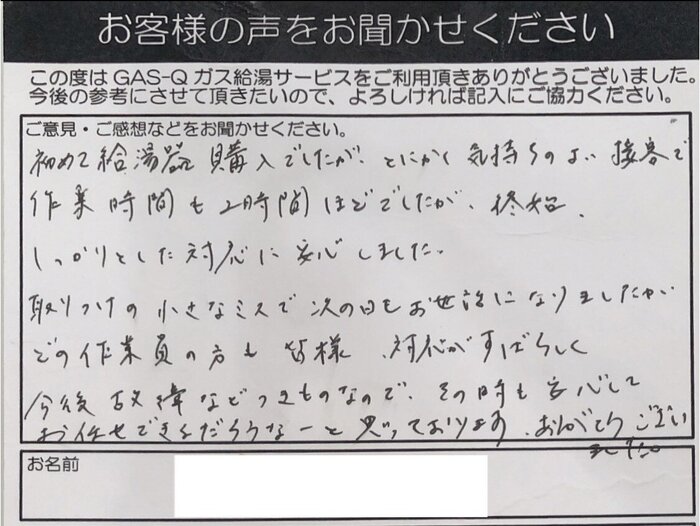 お客様の声をお聞かせください
この度はGAS-Qガス給湯サービスをご利用頂きありがとうございました。
今後の参考にさせて頂きたいので、よろしければ記入にご協力ください。
ご意見・ご感想などをお聞かせください。
初めて給湯器購入でしたが、とにかく気持ちのよい接客で
作業時間も2時間ほどでしたが、終始、
しっかりとした対応に安心しました。
取りつけの小さなミスで次の日もお世話になりましたが
どの作業員の方も皆様、対応がすばらしく
今後故障などつきものなので、その時も安心して
お任せできるだろうなーと思っております。ありがとうござい
ました
お名前